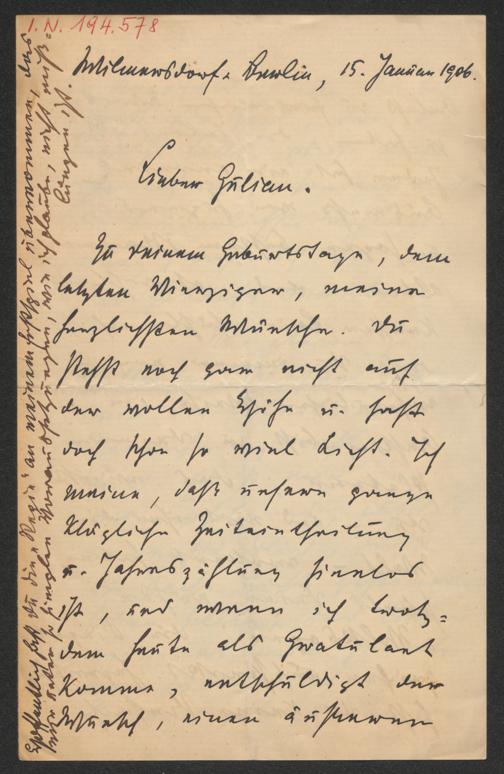 I. N. 194.578
Wilmersdorf-Berlin, 15. Januar 1906.
Lieber Gülian.
Zu deinem Geburtstage, dem
letzten Vierziger, meine
herzlichsten Wünsche. Du
stehst noch gar nicht auf
der vollen Höhe u. hast
doch schon so viel Licht. Ich
meine, daß unsere ganze
klägliche Zeiteintheilung
u. Jahreszählung sinnlos
ist, und wenn ich trotz=
dem heute als Gratulant
komme, entschuldigt der
Wunsch, einen äußeren
Hoffentlich hast du die „Regie“ an meinem Festspiel übernommen, das
unter den so Voraussetzungen, wie ich glaube, nicht miß-
lungen ist.